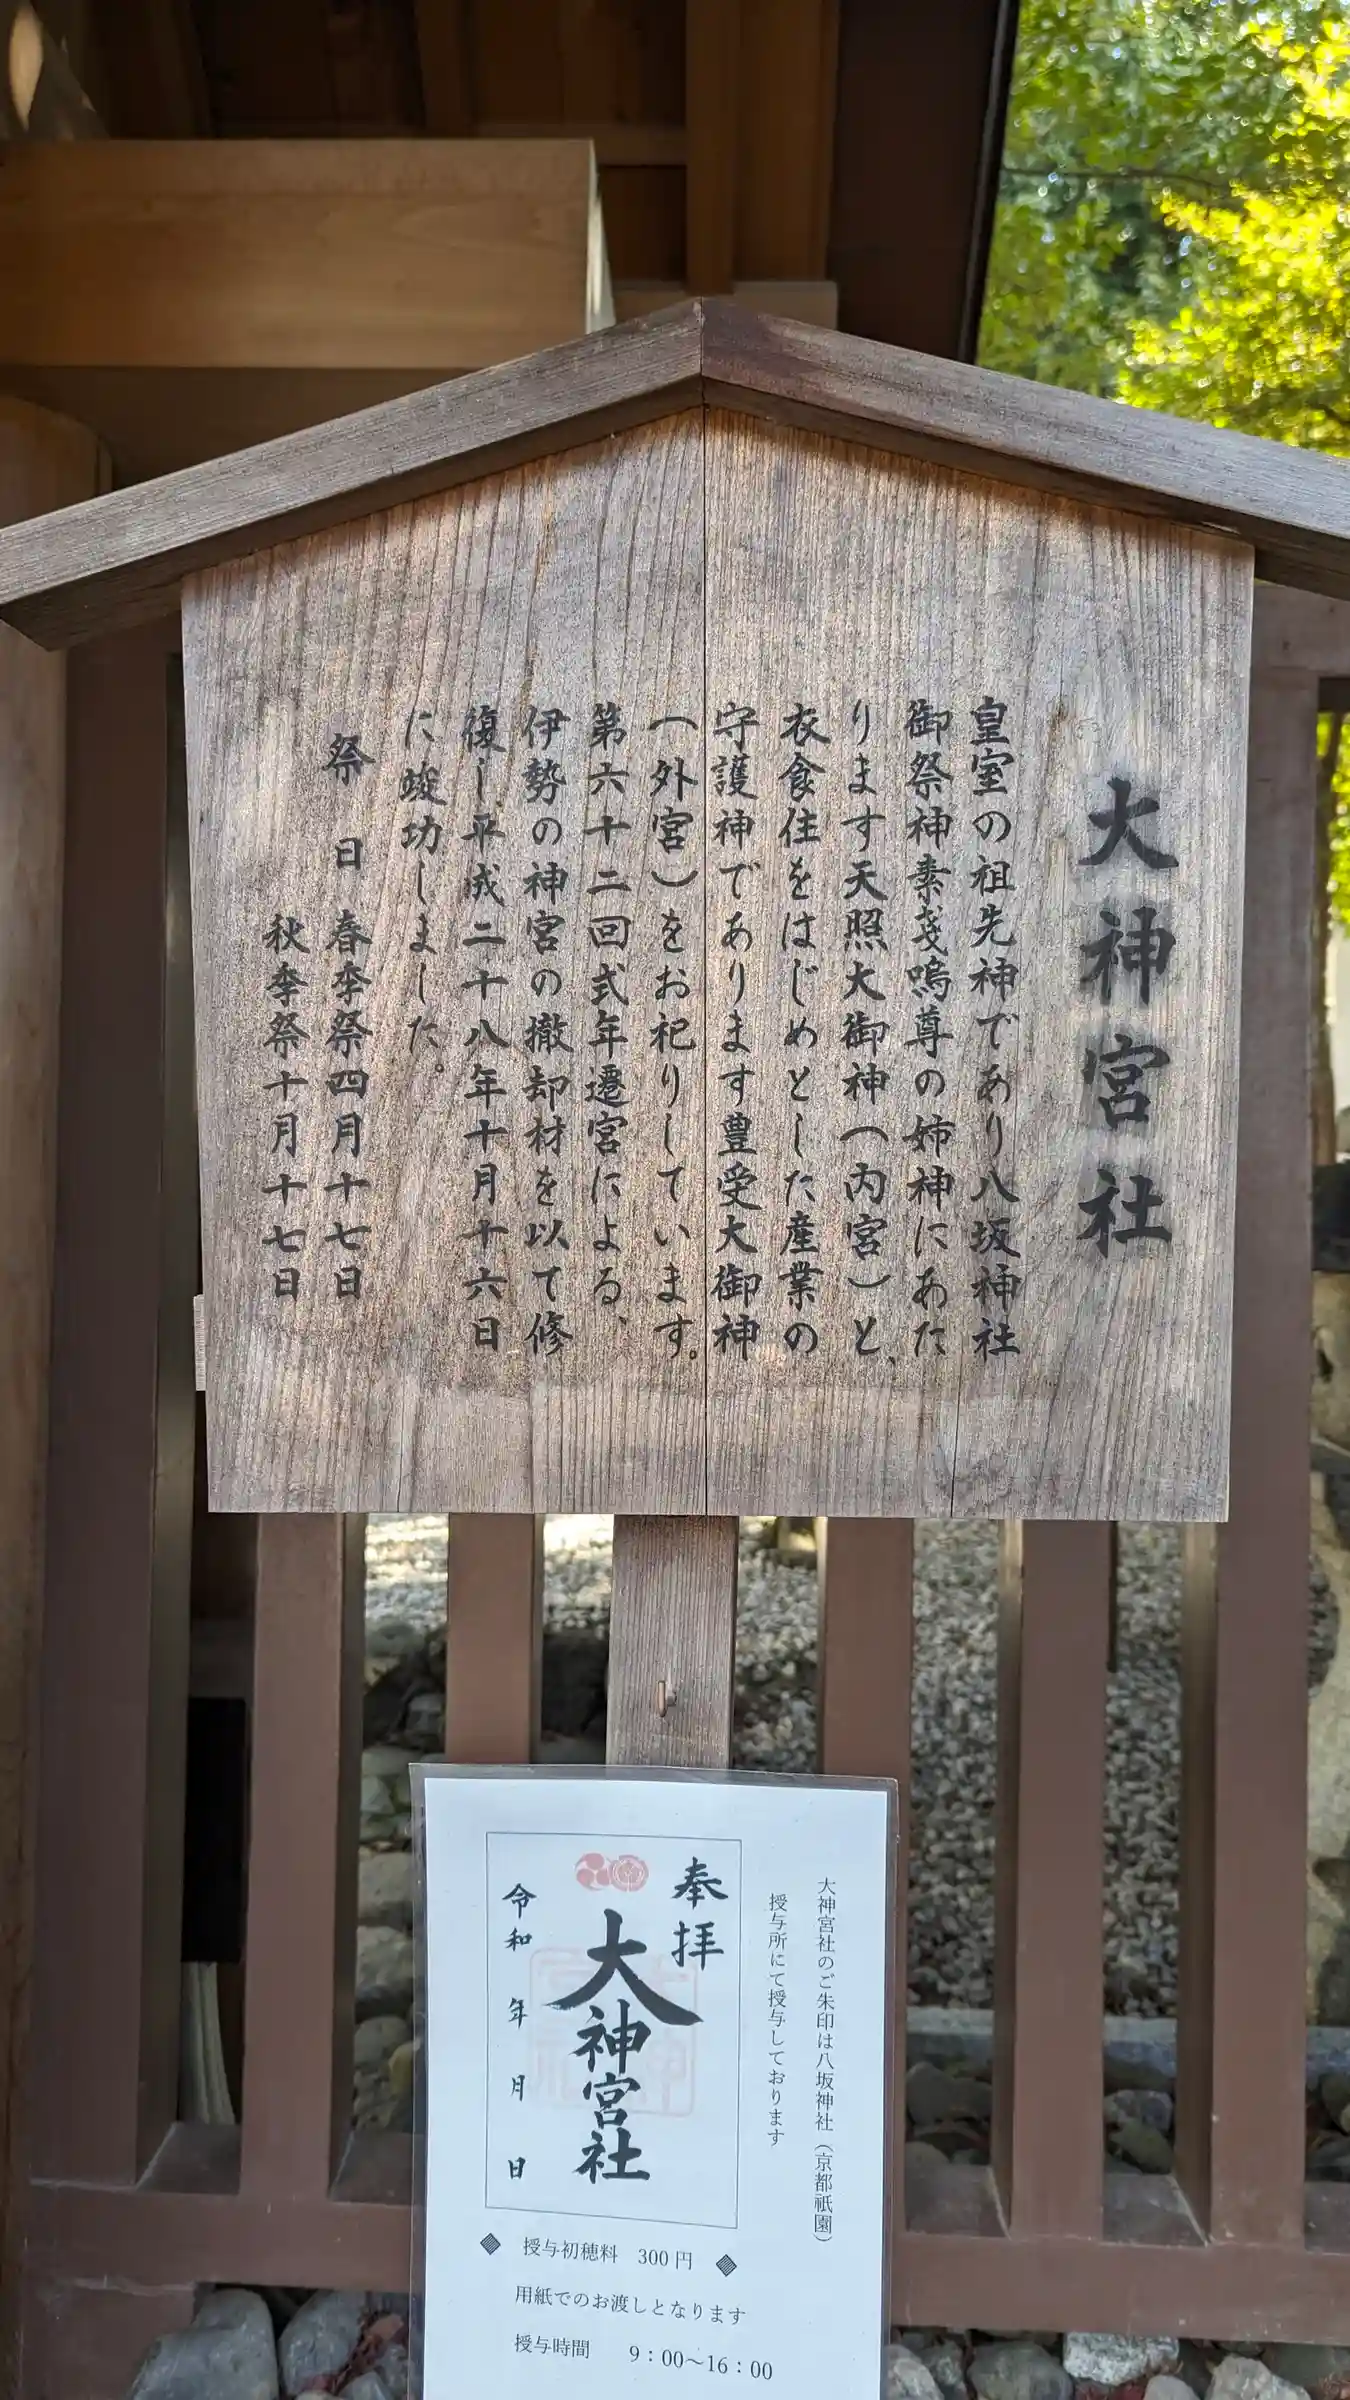 大神宮社
皇室の祖先神であり八坂神社
御祭神素戔嗚尊の姉神にあた
ります天照大御神(内宮)と、
衣食住をはじめとした産業の
守護神であります豊受大御神
(外宮)をお祀りしています。
第六十二回式年遷宮による、
伊勢の神宮の撤却材を以て修
復し平成二十八年十月十六日
に竣功しました。
祭 日 春季祭四月十七日
秋季祭十月十七日
大神宮社のご朱印は八坂神社(京都祇園)
授与所にて授与しております
奉拝
大神宮社
令和 年 月 日
◆ 授与初穂料 300円 ◆
用紙でのお渡しとなります
授与時間 9:00~16:00